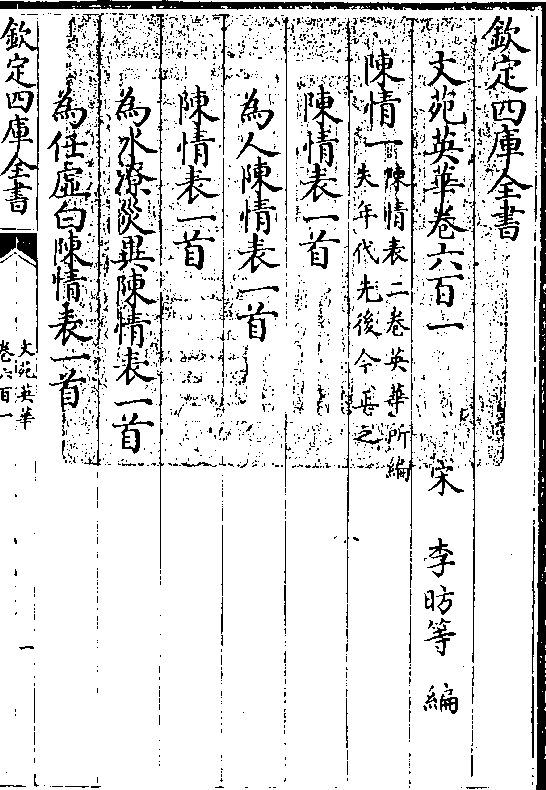 欽定四庫全書
文苑英華卷六百一
宋 李昉等 編
陳情一陳情表二卷英華所編
失年代先後今正之
陳情表一首
為人陳情表一首
陳情表一首
為水潦災異陳情表一首
為任虛白陳情表一首
欽定四庫全書
文苑英華
卷六百一
一